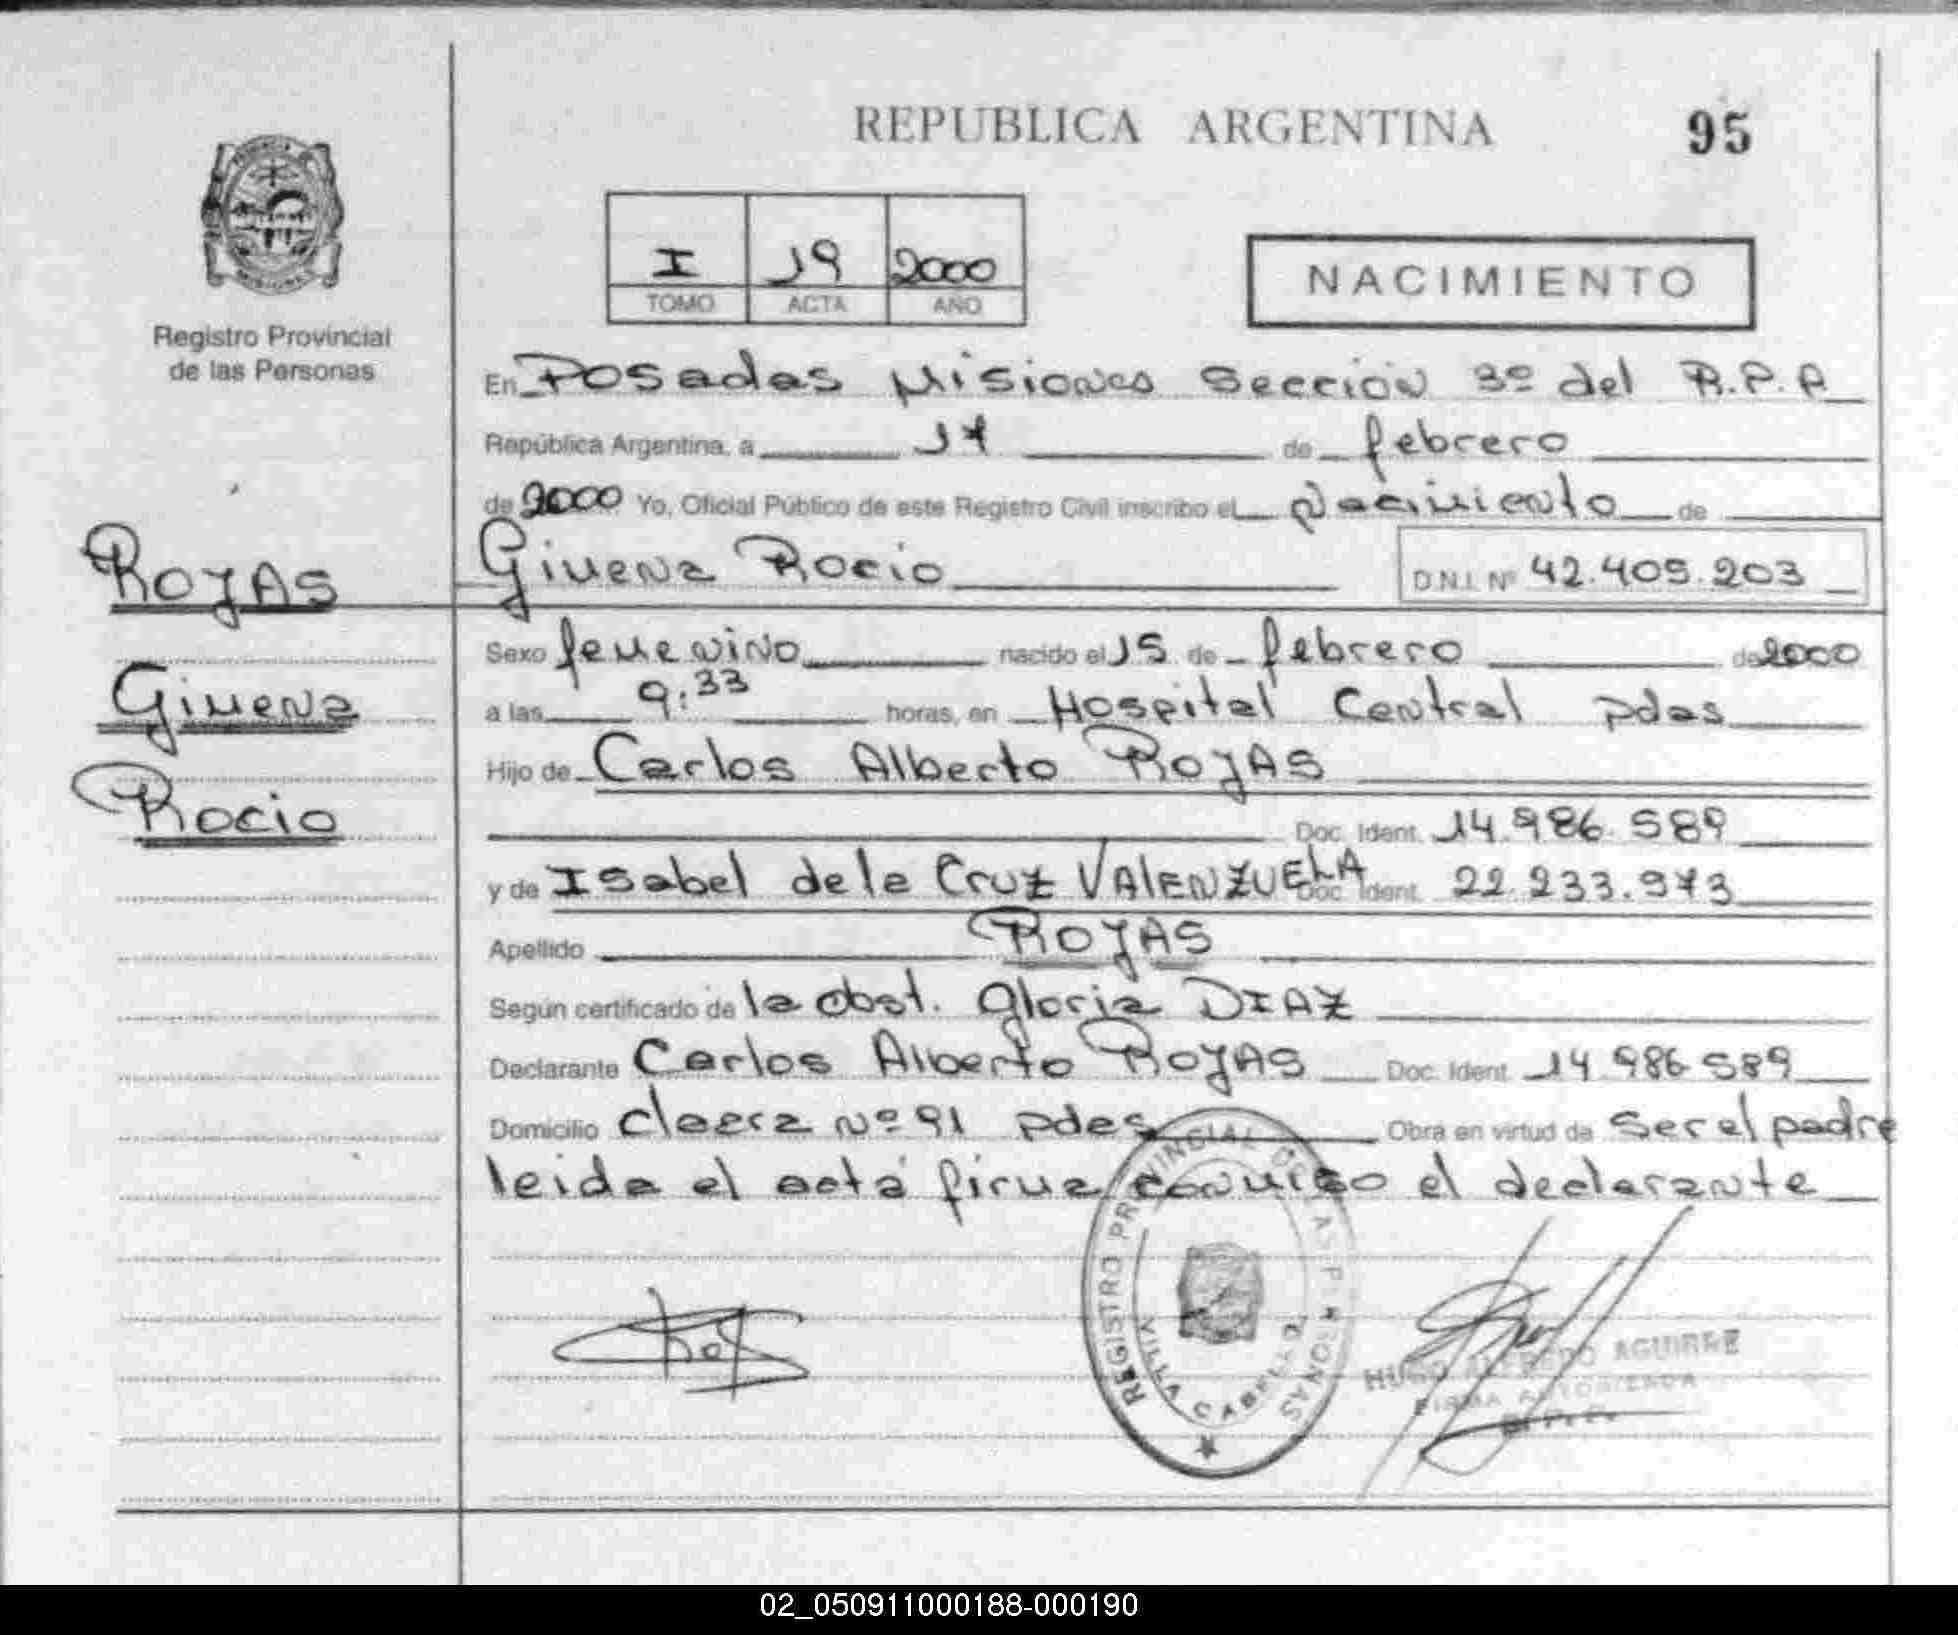 REPUBLICA ARGENTINA
95
I 19 2000
TOMO ACTA AÑO
NACIMIENTO
Registro Provincial
de las Personas
En Posadas Misiones Sección 3º del R.P.P
República Argentina, a 17 de febrero
de 2000 Yo, Oficial Público de este Registro Civil inscribo el Nacimiento de
Gimena Rocio D.N.I. Nº 42.405.203
ROJAS
Gimena
Rocio
Sexo femenino nacido el 15 de febrero de 2000
a las 9:33 horas, en Hospital Central pdas
Hijo de Carlos Alberto ROJAS
Doc. Ident. 14.986.589
y de Isabel de la Cruz VALENZUELA Doc. Ident. 22.233.973
Apellido ROJAS
Según certificado de la obst. Gloria DIAZ
Declarante Carlos Alberto ROJAS Doc. Ident. 14.986.589
Domicilio Nº 91 pdas Obra en virtud de ser el padre
leida el acta firma conmigo el declarante
REGISTRO PROVINCIAL DE LAS PERSONAS
VILLA CABELLO
HUGO ALFREDO AGUIRRE
FIRMA AUTORIZADA
02_050911000188-000190